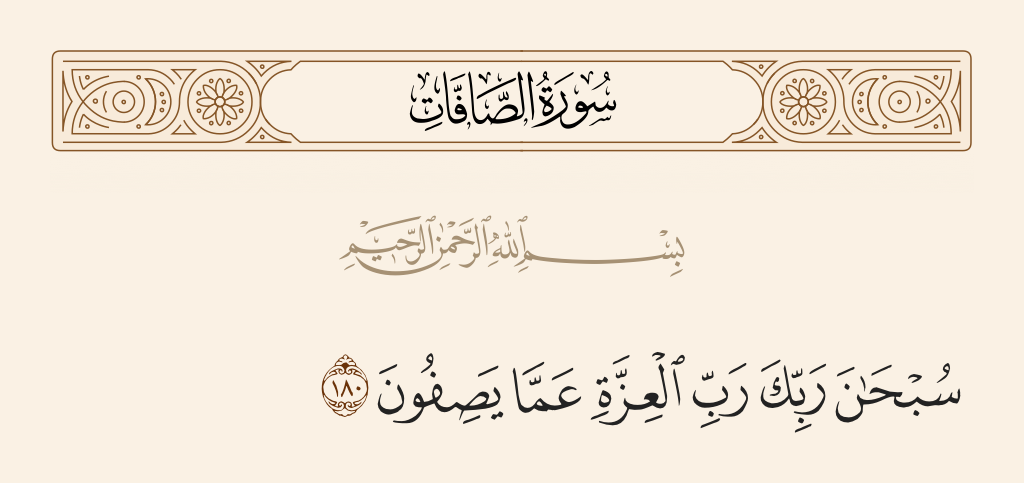 سُورَةُ الصَّافَّاتِ
بِسْمِ ٱللَّهِ ٱلرَّحْمَٰنِ ٱلرَّحِيمِ
سُبْحَٰنَ رَبِّكَ رَبِّ ٱلْعِزَّةِ عَمَّا يَصِفُونَ ١٨٠